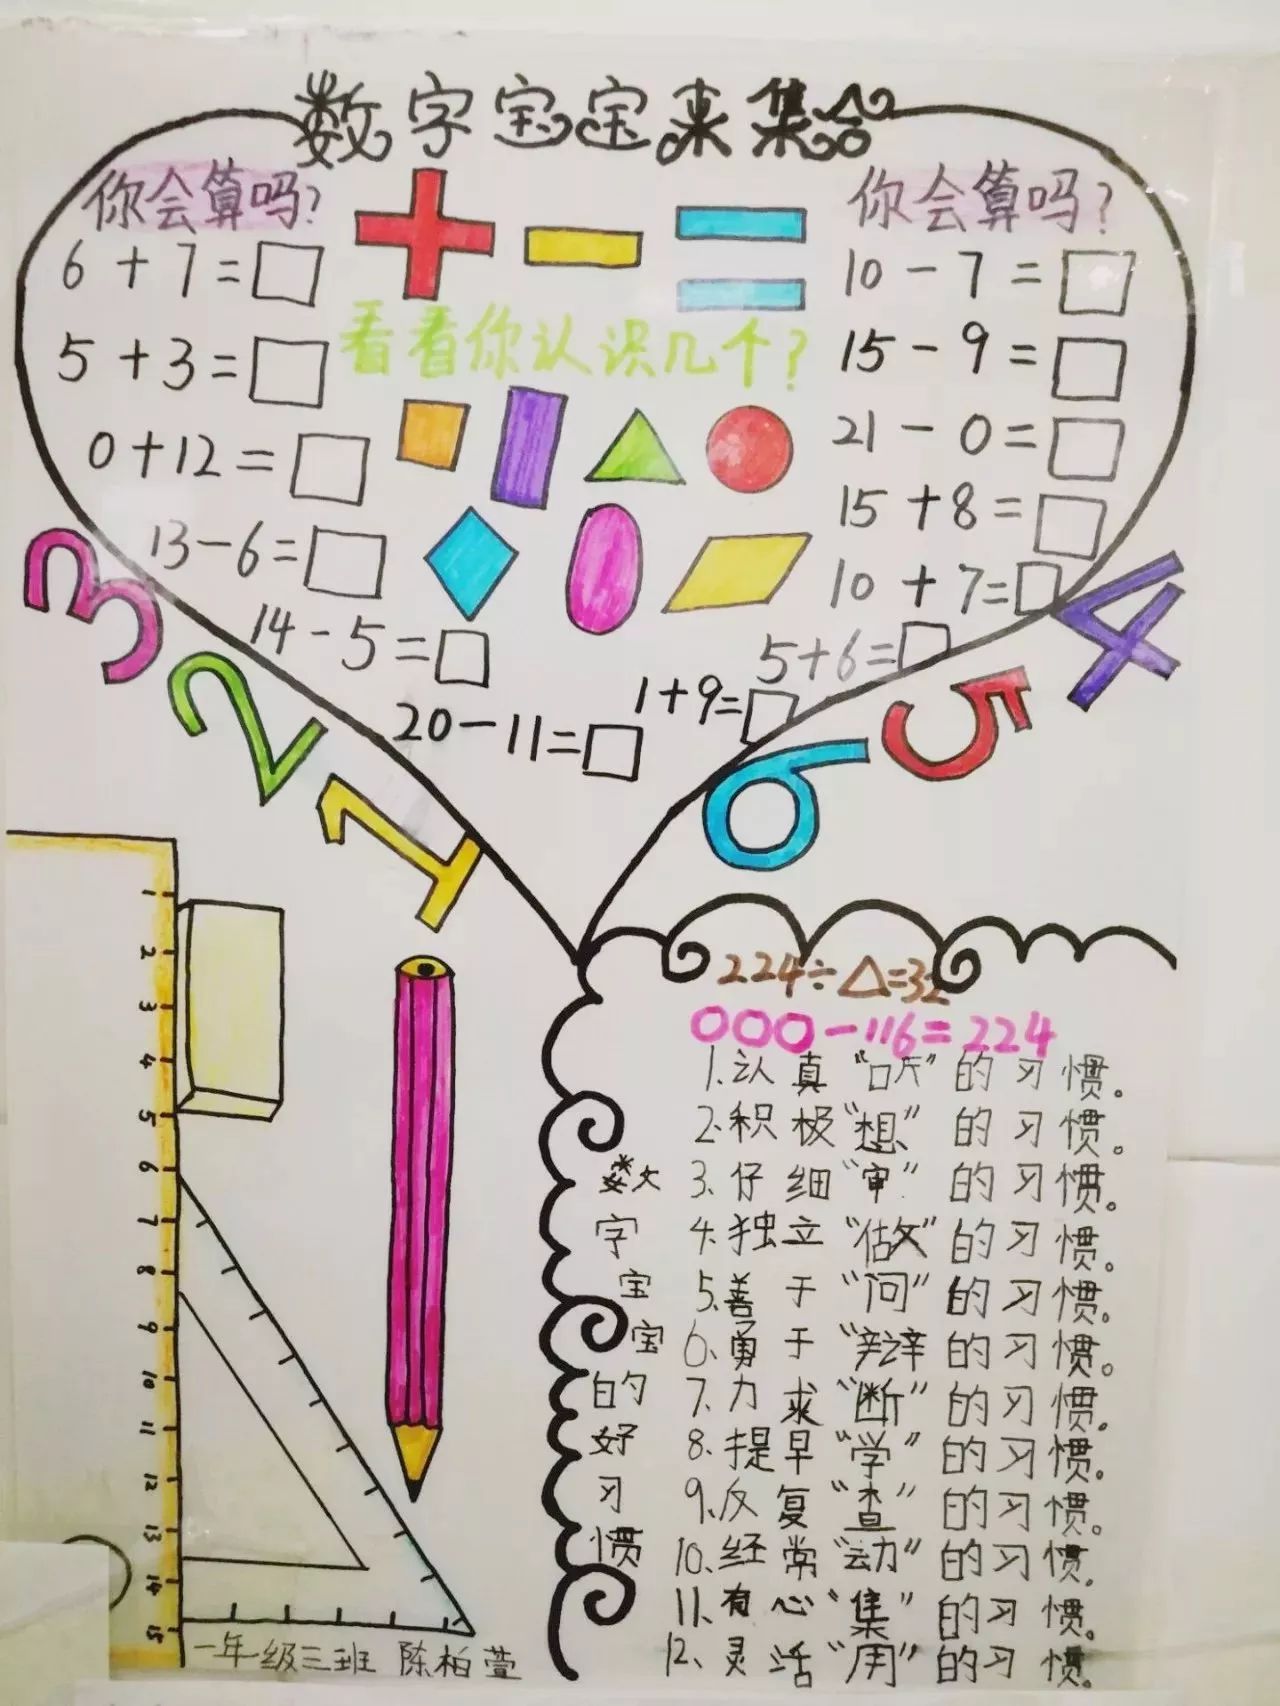 数字宝宝来集合
你会算吗?
6+7=□
5+3=□
0+12=□
13-6=□
14-5=□
20-11=□
+ - =
看看你认识几个?
你会算吗?
10-7=□
15-9=□
21-0=□
15+8=□
10+7=□
5+6=□
1+9=□
3
2
1
4
5
6
1
2
3
4
5
6
7
8
9
10
11
12
13
14
15
224÷△=32
〇〇〇-116=224
数字宝宝的好习惯
1.认真“听”的习惯。
2.积极“想”的习惯。
3.仔细“审”的习惯。
4.独立“做”的习惯。
5.善于“问”的习惯。
6.勇于“辩”的习惯。
7.力求“断”的习惯。
8.提早“学”的习惯。
9.反复“查”的习惯。
10.经常“动”的习惯。
11.有心“集”的习惯。
12.灵活“用”的习惯。
一年级三班 陈柏萱